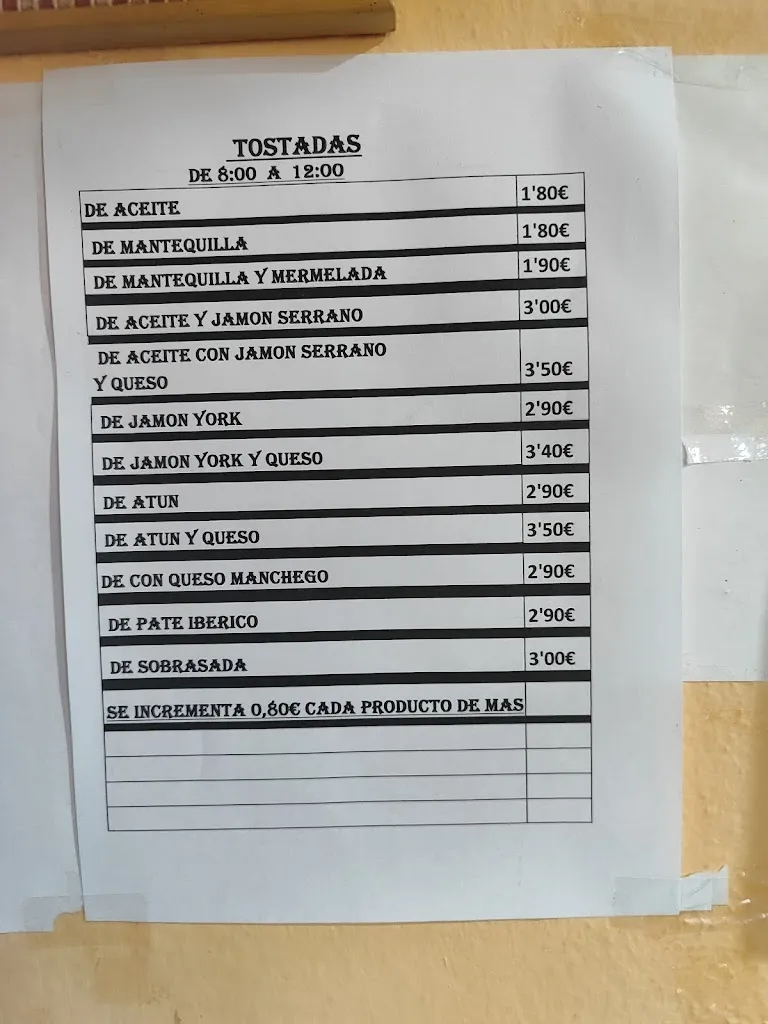 TOSTADAS
DE 8:00 A 12:00
DE ACEITE 1'80€
DE MANTEQUILLA 1'80€
DE MANTEQUILLA Y MERMELADA 1'90€
DE ACEITE Y JAMON SERRANO 3'00€
DE ACEITE CON JAMON SERRANO
Y QUESO 3'50€
DE JAMON YORK 2'90€
DE JAMON YORK Y QUESO 3'40€
DE ATUN 2'90€
DE ATUN Y QUESO 3'50€
DE CON QUESO MANCHEGO 2'90€
DE PATE IBERICO 2'90€
DE SOBRASADA 3'00€
SE INCREMENTA 0,80€ CADA PRODUCTO DE MAS